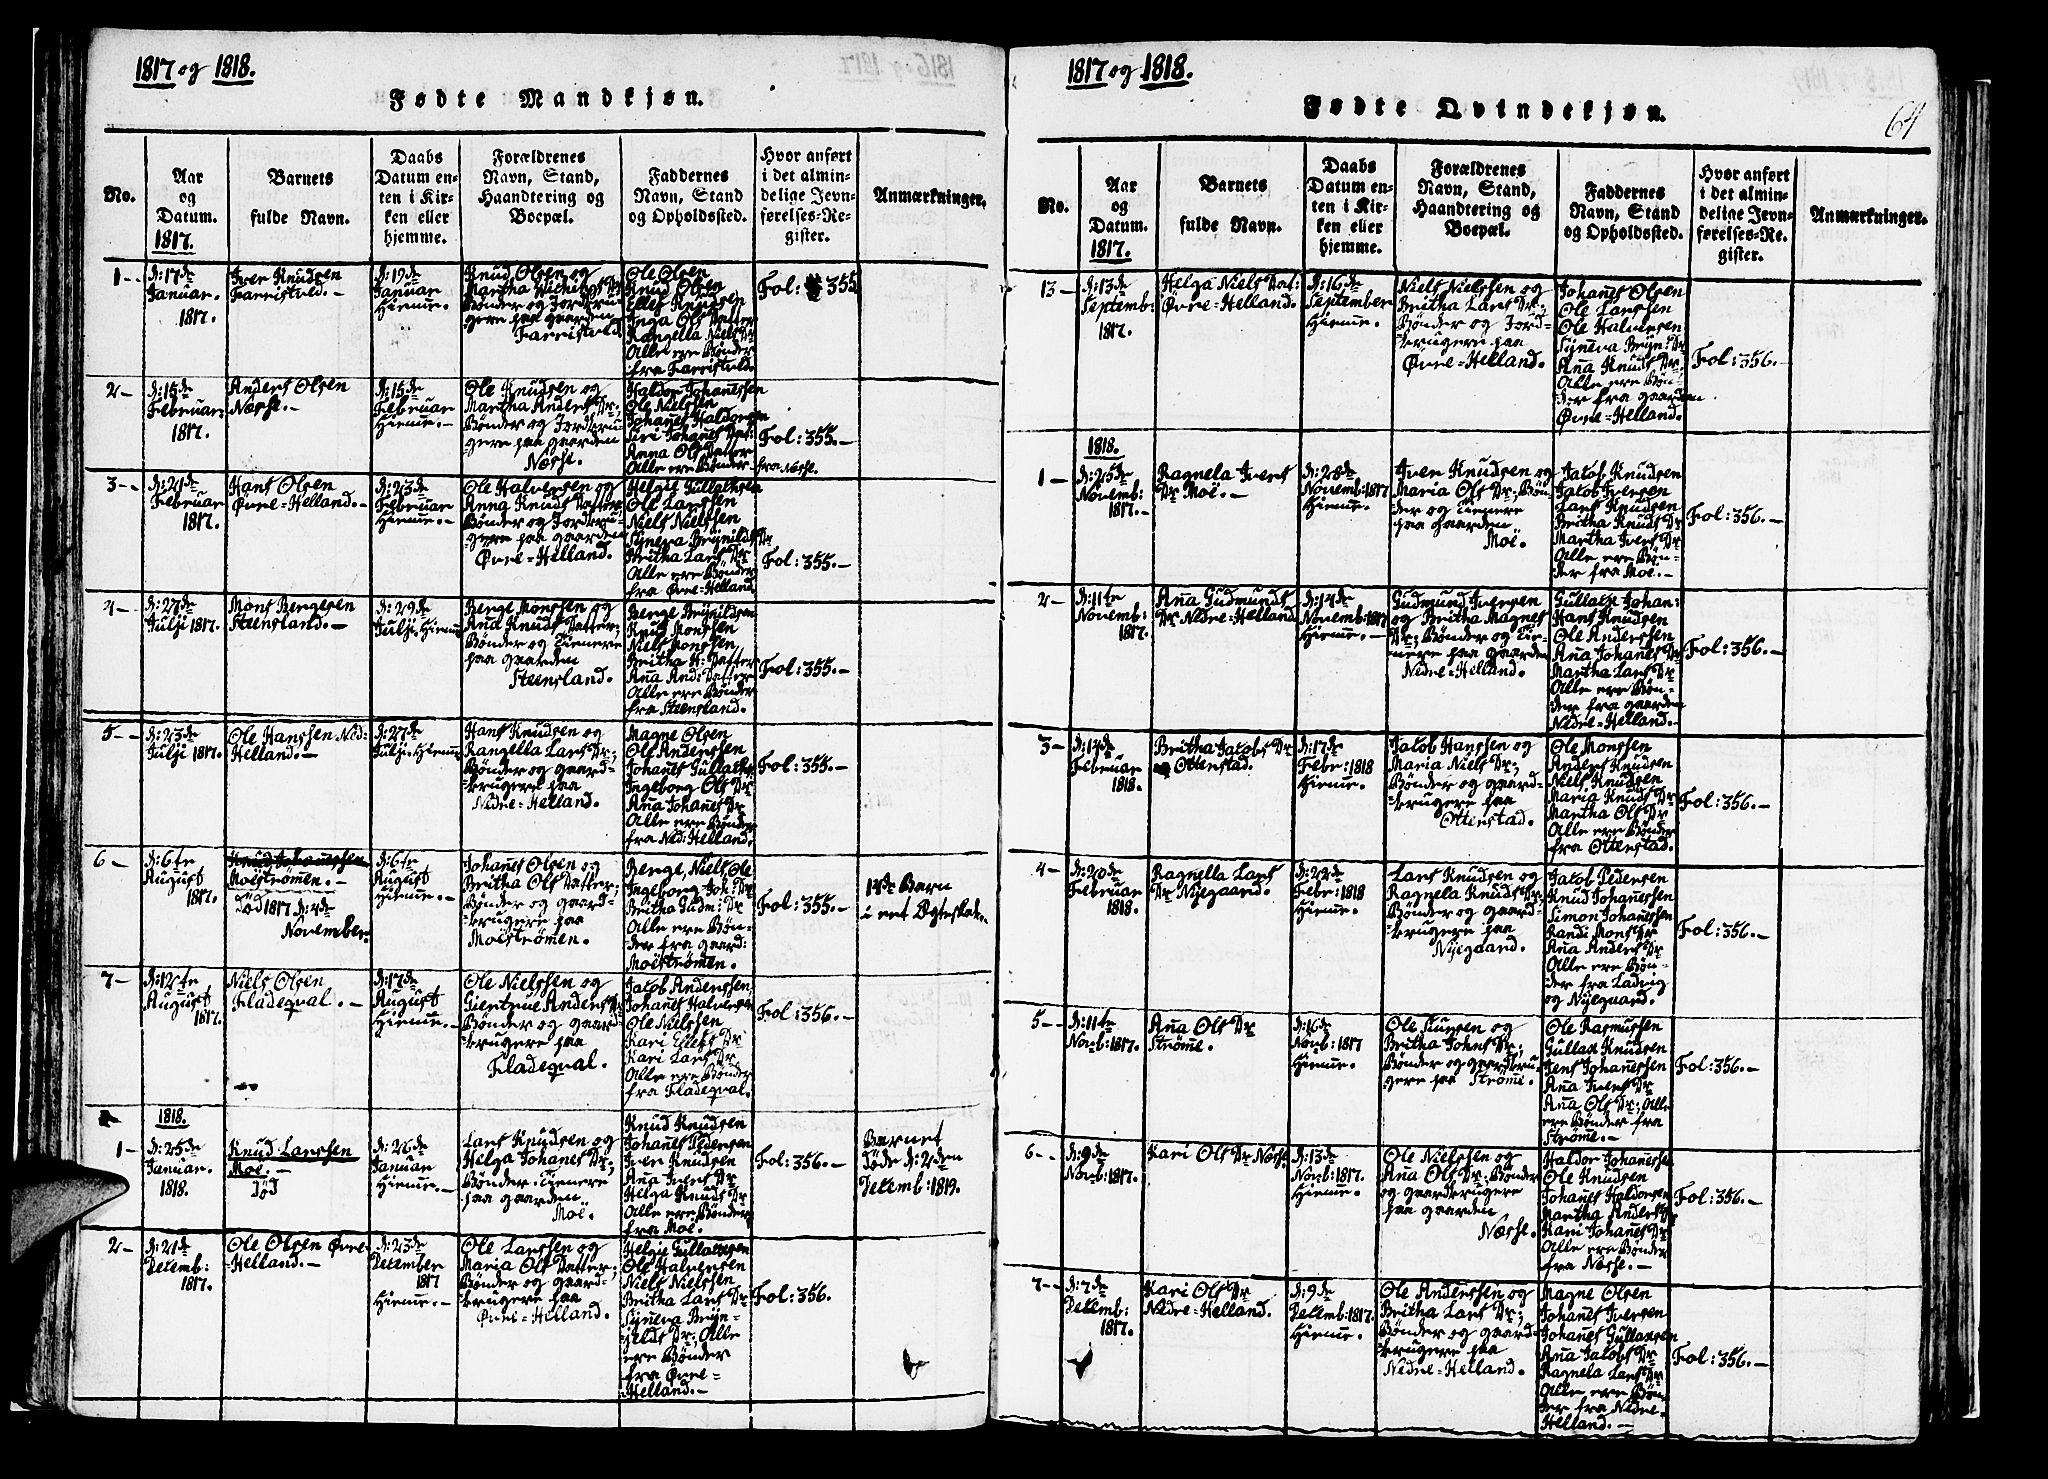 1817 og 1818.
Fødte Mandkjøn.
No.
Aar
og
Datum.
1817.
Barnets
fulde Navn.
Daabs
Datum en-
ten i Kir-
ken eller
hjemme.
Forældrenes
Navn, Stand,
Haandtering og
Boepæl.
Faddernes
Navn, Stand
og Opholdssted.
Hvor anført
i det almin-
delige Jevn-
førelses-Re-
gister.
Anmærkninger.
1--
D:17de
Januar.
1817.
Iver Knudsen
Farristvld.-
D:19de
Januar
Hiemme.
Knud Olsen og
Martha
Bønder og Jordbru-
gere paa gaarden
Farristvld.
Ole Olsen
Knud Olsen
Ellef Knudsen
Inga Ols Datter
Rangella Niels Dr
Alle ere Bønder
fra Farristvld.
Fol: 355
2-
D:15de
Februar.
1817.
Anders Olsen
Næsse.-
D:15de
Februar
Hiemme.-
Ole Knudsen og
Martha Anders Dr;
Bønder og Jordbru-
gere paa gaarden
Næsse.
Haldor Johanessen
Ole Nielsen
Johanes Haldorsen
Siri Johanes Dat:
Anna Ols Datter
Alle ere Bønder
fra Næsse.
Fol:355.-
3--
D:21de
Februar
1817.
Hans Olsen
Øvre=Helland.-
D:23de
Februar
Hiemme.-
Ole Halversen og
Anna Knuds Datter
Bønder og Jordbru-
gere paa gaarden
Øvre=Helland.
Helgie Gullachsen
Ole Larssen
Niels Nielssen
Synneva Brynilds Dr
Britha Lars Dr
Alle ere Bønder
fra Øvre=Helland.
Fol:355.-
4--
D:27de
Julji 1817.
Mons Bergesen
Steensland.-
D:29de
Julji. Hiemme
Berge Monssen og
Ana Knuds Datter;
Bønder og Tienere
paa gaarden
Steensland.
Berge Brynildsen
Knud Monssen
Niels Monssen
Britha H: Datter
Ana And: Datter
Alle ere Bønder
fra Steensland.
Fol:355.-
5--
D:23de
Julji 1817.
Ole Hanssen Ned:
Helland.-
D:27de
Julji. Hiemme
Hans Knudsen og
Rangella Lars Dr;
Bønder og gaard-
brugere paa
Nedre=Helland.
Magne Olsen
Ole Anderssen
Johanes Gullachs
Ingeborg Ols Dr
Ana Johanes Dr
Alle ere Bønder
fra Ned:Helland.
Fol:355.-
6-
D:6te
August
1817.
Knud Johanessen
Moestrømen.-
Død 1817 D:2de
November.
D:6te
August
Hiemme.-
Johanes Olsen og
Britha Ols Datter;
Bønder og gaard-
brugere paa
Moestrømen.
Berge, Niels, Ole
Ingeborg Joh: Dr
Britha Gudm: Dr
Alle ere Bøn-
der fra gaard:
Moestrømen.
Fol:355.-
12te Barn
i eet Ægteskab.
7-
D:12te
August
1817.
Niels Olsen
Fladeqval.-
D:17de
August
Hiemme.-
Ole Nielssen og
Giertrue Anders Dr
Bønder og gaard-
brugere paa
Fladeqval.
Jacob Anderssen,
Johanes Halversen
Ole Nielssen
Kari Ellefs Dr
Kari Lars Dr
Alle ere Bønder
fra Fladeqval.
Fol:356.-
1818.
1-
D:25de
Januar.
1818.
Knud Larssen
Moe.-
Død
D:26de
Januar
Hiemme.-
Lars Knudsen og
Helga Johanes Dr;
Bønder Tienere
paa gaarden
Moe.
Knud Knudsen
Johanes Pedersen
Iver Knudsen
Ana Ivers Dr
Helga Knuds Dr
Alle ere Bønder
fra Moe.
Fol:356.-
Barnet
døde D:2den
Decemb:1819.
2-
D:21de
Decemb:
1817.
Ole Olsen Øvre-
Helland.-
D:23de
December
1817
Hiemme.-
Ole Larssen og
Maria Ols Datter;
Bønder og gaard-
brugere paa
Øvre=Helland.
Helgie Gullachsen
Ole Halversen
Niels Nielssen
Britha Lars Dr
Synneva Bryn-
jelds Dr; Alle
ere Bønder
fra Øvre-
Helland.-
Fol:356.
1817 og 1818.
Fødte Qvindekjøn.
64
No.
Aar
og
Datum.
1817.
Barnets
fulde Navn.
Daabs
Datum en-
ten i Kir-
ken eller
hjemme.
Forældrenes
Navn, Stand,
Haandtering og
Boepæl.
Faddernes
Navn, Stand
og Opholdssted.
Hvor anført
i det almin-
delige Jevn-
førelses-Re-
gister.
Anmærkninger.
13-
D:13de
Septemb:
1817.
Helga Niels Dat:
Øvre=Helland.
D:16de
September
Hiemme.
Niels Nielssen og
Britha Lars Dr;
Bønder og Jord-
brugere paa
Øvre=Helland.
Johanes Olsen
Ole Larssen
Ole Halversen
Synneva Bryn: Dr
Ana Knuds Dr.
Alle ere Bøn-
der fra gaarden
Øvre=Helland.
Fol:356.-
1818.
1-
D:25de
Novemb:
1817.
Ragnela Ivers
Dr Moe.-
D:28de
Novemb:1817
Hiemme.
Iver Knudsen og
Maria Ols Dr; Bøn-
der og Tienere
paa gaarden
Moe.
Jacob Knudsen
Jacob Iversen
Lars Knudsen
Britha Knuds Dr
Martha Ivers Dr
Alle ere Bøn-
der fra Moe.-
Fol:356.-
2-
D:11te
Novemb:
1817.
Ana Gudmunds
Dr Nedre=Helland
D:14de
Novemb:1817
Hiemme.-
Gudmund Iversen
og Britha Magnes
Dr; Bønder og Tie-
nere paa gaarden
Nedre=Helland.
Gullach Johan:
Hans Knudsen
Ole Anderssen
Ana Johanes Dr
Martha Lars Dr
Alle ere Bøn-
der fra gaarden
Nedre=Helland.-
Fol:356.-
3-
D:14de
Februar
1818.
Britha Jacobs Dr
Ottenstad.
D:17de
Febr:1818
Hiemme.
Jacob Hanssen og
Maria Niels Dr;
Bønder og gaard-
brugere paa
Ottenstad.
Ole Monssen
Anders Knudsen
Niels Knudsen
Maria Knuds Dr
Martha Ols Dr
Alle ere Bønder
fra Ottenstad.
Fol:356.-
4-
D:20de
Februar
1818.
Ragnella Lars
Dr Nyegaard.
D:22de
Febr:1818
Hiemme.
Lars Knudsen og
Ragnela Knuds Dr;
Bønder og gaard-
brugere paa
Nyegaard.
Jacob Pedersen
Knud Johanessen
Simon Johanessen
Randi Mons Dr
Ana Anders Dr
Alle ere Bøn-
der fra Ladvig
og Nylgaard.
Fol:356.-
5--
D:11te
Novb:1817.
Ana Ols Dr
Strøme.
D:16de
Novb:1817
Hiemme.
Ole og
Britha Johns Dr;
Bønder og gaardbru-
gere paa Strøme.
Ole Rasmussen
Gullack Knudsen
Jens Johanessen
Ana Ivers Dr
Ana Ols Dr; Alle
ere Bønder fra
Strøme.-
Fol:356.-
6--
D:9de
Novb:1817.
Kari Ols Dr Næsse.
D:13de
Novb:1817.
Hiemme.
Ole Nielssen og
Ana Ols Dr; Bønder
og gaardbrugere
paa gaarden
Næsse.
Haldor Johanessen
Ole Knudsen
Johanes Haldorsen
Martha Anders Dr
Kari Johanes Dr
Alle ere Bønder
fra Næsse.-
Fol:356.-
7--
D:7de
Decemb:
1817.
Kari Ols Dr
Nedre=Helland.
D:9de
Decemb:1817.
Hiemme.
Ole Anderssen og
Britha Lars Dr;
Bønder og gaard-
brugere paa
Nedre=Helland.
Magne Olsen
Johanes Iversen
Johanes Gullacksen
Ana Jacobs Dr
Ragnela Lars Dr
Alle ere Bøn-
der fra Nedre-
Helland.-
Fol:356.-